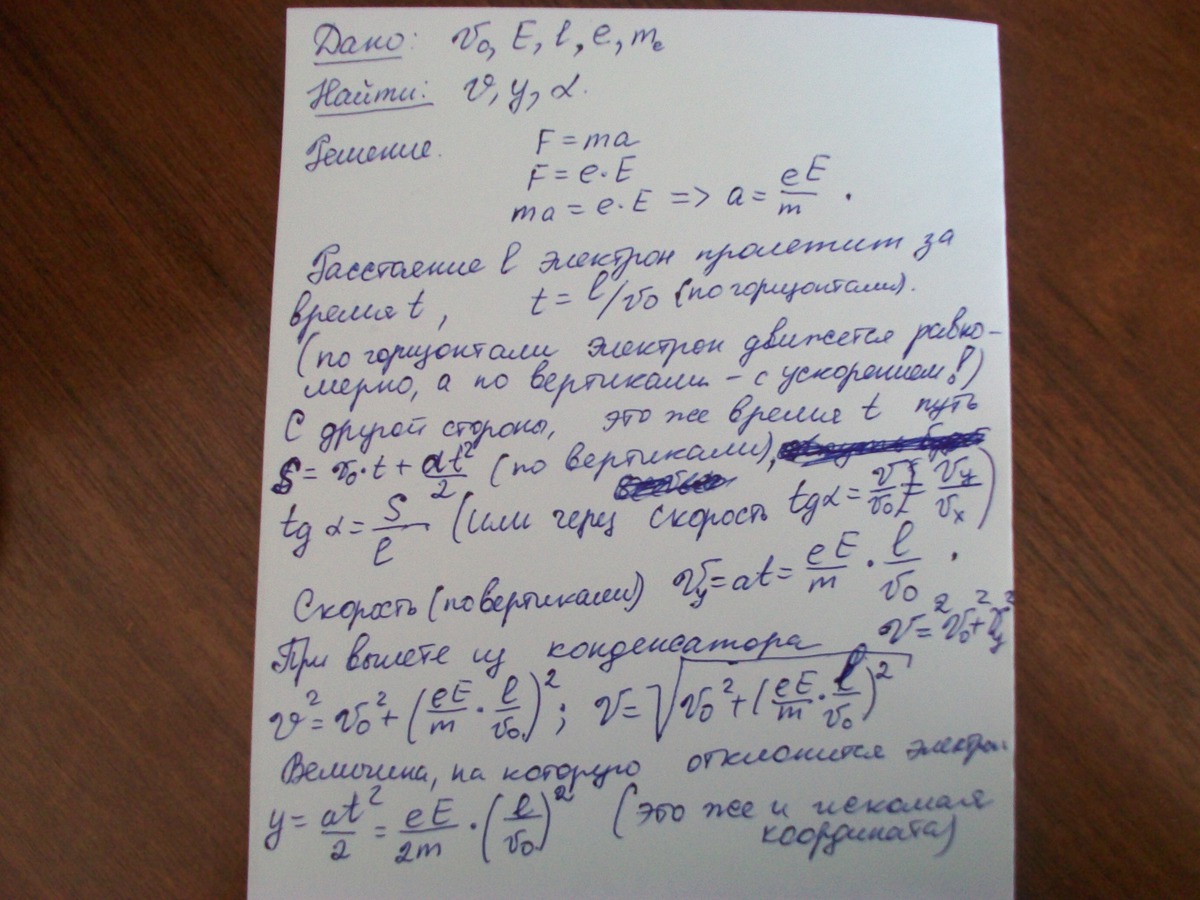 Дано: v₀, E, l, e, mₑ
Найти: v, y, α.
Решение. F = ma
F = e·E
ma = e·E => a = eE/m.
Расстояние l электрон пролетит за
время t, t = l/v₀ (по горизонтали).
(по горизонтали электрон движется равно-
мерно, а по вертикали - с ускорением!)
С другой стороны, это же время t путь
S = v₀·t + at²/2 (по вертикали),
tg α = S/l (или через скорость tg α = v/v₀ = v_y/v_x)
Скорость (по вертикали) v_y = at = eE/m · l/v₀.
При вылете из конденсатора v² = v₀² + v_y²
v² = v₀² + (eE/m · l/v₀)²; v = √(v₀² + (eE/m · l/v₀)²)
Величина, на которую отклонится электрон
y = at²/2 = eE/2m · (l/v₀)² (это же и искомая
координата)